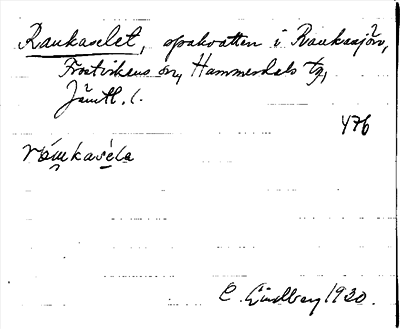 Raukaselet, spakvatten i Raukasjön,
Frostvikens sn, Hammerdals tg,
Jämtl. l.
476
råukaséla
C. Lindberg 1930.